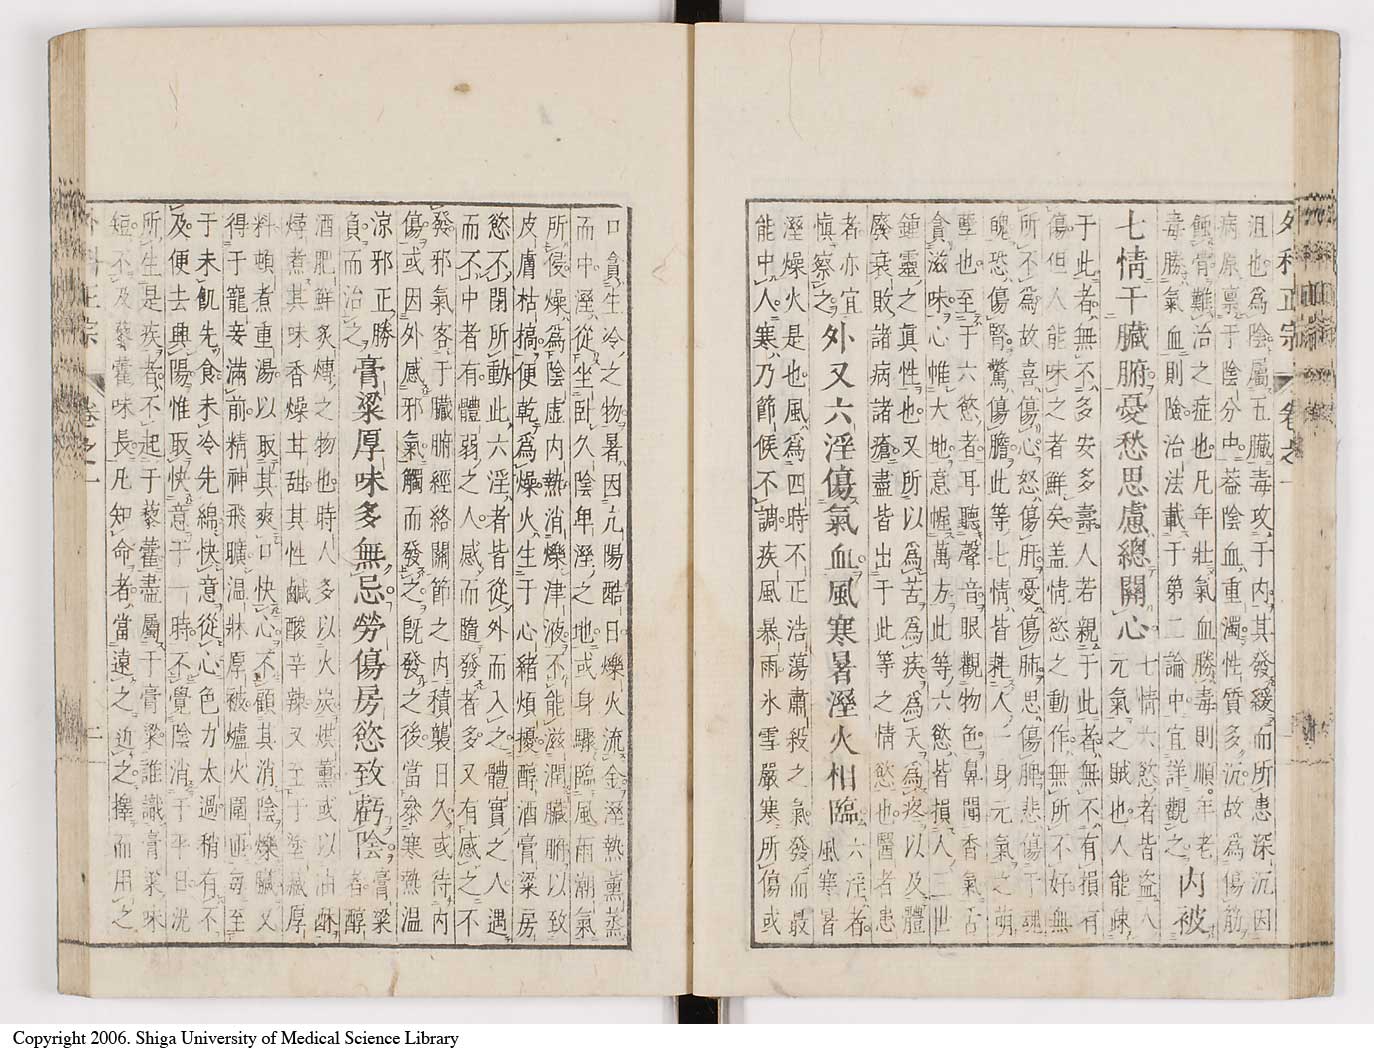 外科正宗 卷之一
沮也爲陰屬五臟毒攻于内其發緩而所患深沉因
病原禀于陰分中葢陰血重濁性質多沉故爲傷筋
蝕骨難治之症也凡年壯氣血勝毒則順年老
毒勝氣血則險治法載于第二論中宜詳觀之
内被
七情干臟腑憂愁思慮總關心
七情六慾者皆盜人
元氣之賊也人能疎
于此者無不多安多壽人若親于此者無不有損有
傷但人能味之者鮮矣盖情慾之動作無所不好無
所不爲故喜傷心怒傷肝憂傷肺思傷脾悲傷于魂
魄恐傷腎驚傷膽此等七情皆耗人一身元氣之萌
孽也至于六慾者耳聽聲音眼觀物色鼻聞香氣舌
貪滋味心帷大地意幄萬方此等六慾皆損人三世
鍾靈之眞性也又所以爲苦爲疾爲夭爲疼以及體
廢衰敗諸病諸瘡盡皆出于此等之情慾也醫者患
者亦宜
愼察之
外又六淫傷氣血風寒暑溼火相臨
六淫者
風寒暑
溼燥火是也風爲四時不正浩蕩肅殺之氣發而最
能中人寒乃節候不調疾風暴雨氷雪嚴寒所傷或
口貪生冷之物暑因亢陽酷日爍火流金溼熱薰蒸
而中溼從坐臥久陰卑溼之地或身驟臨風雨潮氣
所侵燥爲陰虛内熱消爍津液不能滋潤臟腑以致
皮膚枯槁便乾爲燥火生于心緒煩擾醇酒膏粱房
慾不閉所動此六淫者皆從外而入之體實之人遇
而不中者有體弱之人感而隨發者多又有感之不
發邪氣客于臟腑經絡關節之内積襲日久或待内
傷或因外感邪氣觸而發之旣發之後當參寒熱温
涼邪正勝
負而治之
膏粱厚味多無忌勞傷房慾致虧陰
膏粱
者醇
酒肥鮮炙煿之物也時人多以火炭烘薫或以油酥
燖煮其味香燥甘甜其性鹹酸辛辣又至于塗藏厚
料頓煮重湯以取其爽口快心不顧其消陰爍臟又
得于寵妾滿前精神飛曠温牀厚被爐火圍匝毎至
于未飢先食未冷先綿快意從心色力太過稍有不
及便去興陽惟取快意于一時不覺陰消于平日況
所生是疾者不起于藜藿盡屬于膏粱誰識膏粱味
短不及藜藿味長凡知命者當遠之近之擇而用之
外科正宗 卷之一 二
Copyright 2006. Shiga University of Medical Science Library